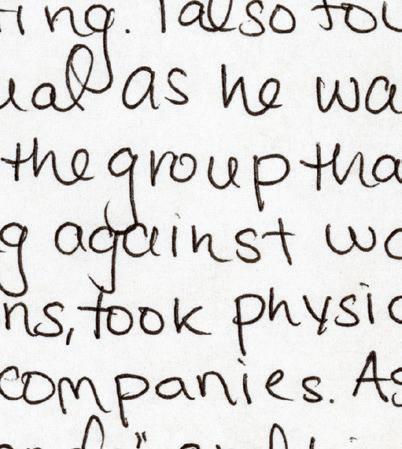 ing. I also fou
ual as he wa
the group tha
g against wo
ns, took physic
companies. As